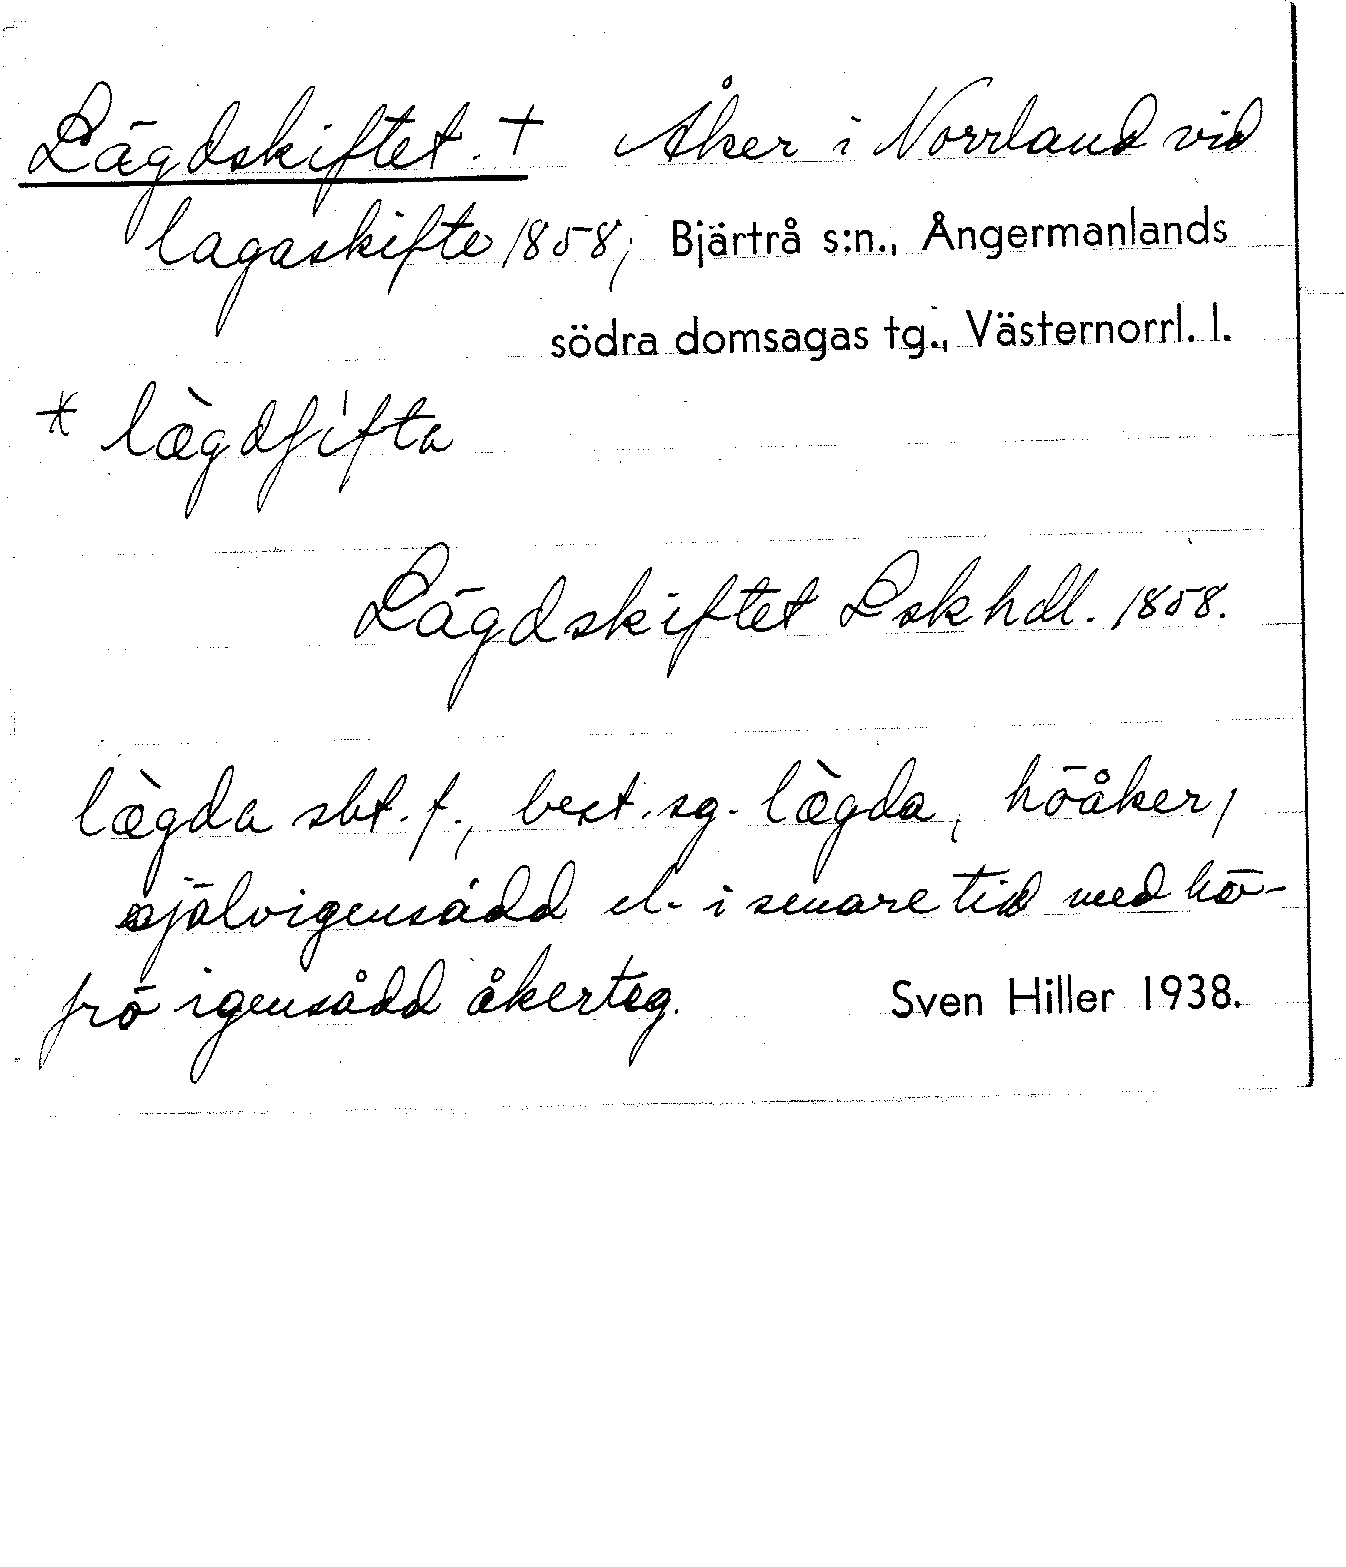 Lägdskiftet. † Åker i Norrland vid
lagaskifte 1858, Bjärtrå s:n., Ångermanlands
södra domsagas tg., Västernorrl. l.
* lægdʃifta
Lägdskiftet Lskhdl. 1858.
lægda sbt. f., best. sg. lægda, höåker,
självigensådd el. i senare tid med hö-
frö igensådd åkerteg. Sven Hiller 1938.